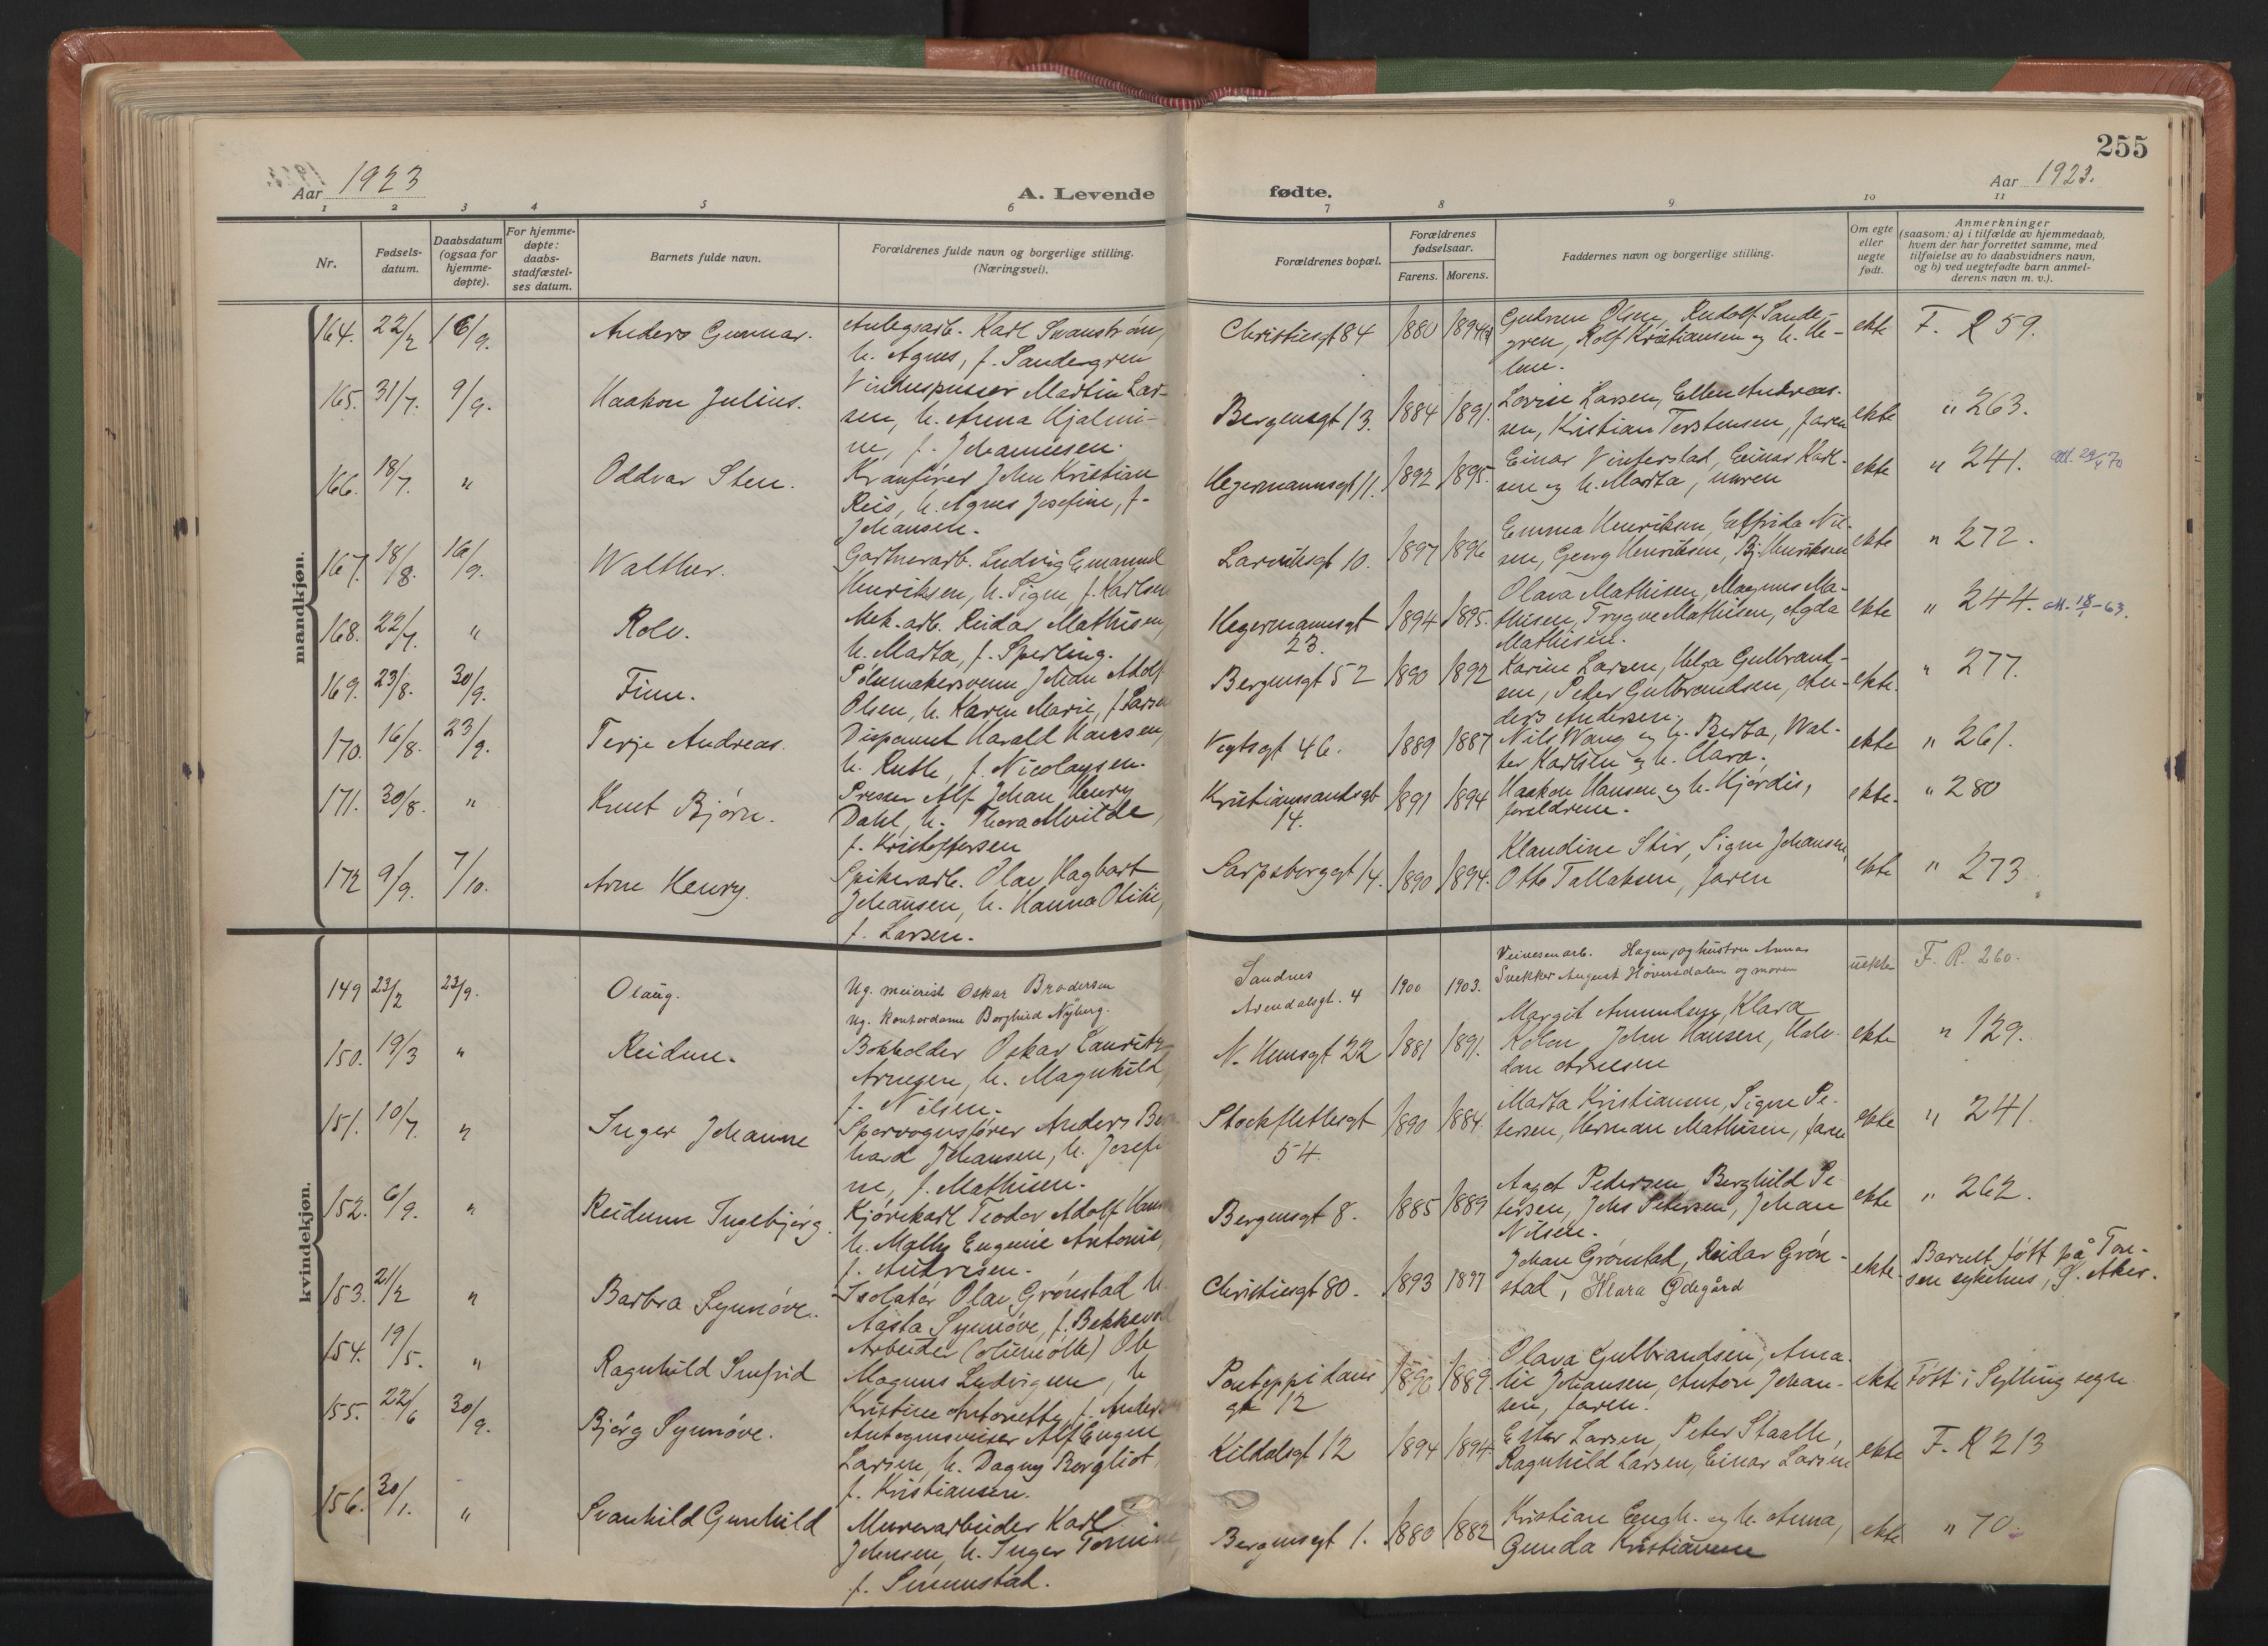 255
Aar 1923
A. Levende
fødte.
Aar 1923.
1 2 3 4 5 6 7 8 9 10 11
Nr.
Fødsels-
datum.
Daabsdatum
(ogsaa for
hjemme-
døpte).
For hjemme-
døpte:
daabs-
stadfæstel-
ses datum.
Barnets fulde navn.
Forældrenes fulde navn og borgerlige stilling.
(Næringsvei).
Forældrenes bopæl.
Forældrenes
fødselsaar.
Farens. Morens.
Faddernes navn og borgerlige stilling.
Om egte
eller
uegte
født.
Anmerkninger
(saasom: a) i tilfælde av hjemmedaab,
hvem der har forrettet samme, med
tilføielse av to daabsvidners navn,
og b) ved uegtefødte barn anmel-
derens navn m. v.).
mandkjøn.
164. 22/2 16/9. Anders Gunnar.
Anlegsarb. Karl Svanström,
h. Agnes, f. Sandergren
Christiesgt 84 1880 1894
Gudrun Olsen, Rudolf Sande-
gren, Rolf Kristiansen og h. He-
lene.
ekte F. R 59.
165. 31/7. 9/9. Haakon Julius.
Vinduspusser Martin Lar-
sen, h. Anna Hjalmi-
ne, f. Johannesen.
Bergensgt 13. 1884 1891.
Lovise Larsen, Ellen Andreas-
sen, Kristian Torstensen, faren
ekte " 263.
166. 18/7. " Oddvar Sten.
Kranfører John Kristian
Reis, h. Agnes Josefine, f.
Johansen.
Hegermannsgt 11. 1892 1895.
Einar Vinterstad, Einar Karl-
sen og h. Marta, moren
ekte " 241. M. 29/4 70
167. 18/8. 16/9. Walther.
Gartnerarb. Ludvig Emanuel
Henriksen, h. Signe, f. Karlsen
Larviksgt 10. 1897 1896
Emma Henriksen, Elfrida Nil-
sen, Georg Henriksen, Bj. Henriksen
ekte " 272.
168. 22/7. " Rolv.
Mek. arb. Reidar Mathisen,
h. Marta, f. Sperling.
Hegermannsgt
23.
1894 1895.
Olava Mathisen, Magnus Ma-
thisen, Trygve Mathisen, Agda
Mathisen.
ekte " 244. M. 18/1-63.
169. 23/8. 30/9. Finn.
Pølsemakersvenn Johan Adolf
Olsen, h. Karen Marie, f. Larsen
Bergensgt 52 1890 1892
Karine Larsen, Helga Gulbrand-
sen, Peter Gulbrandsen, An-
ders Andersen.
ekte. " 277.
170. 16/8. 23/9. Terje Andreas.
Disponent Harald Hansen,
h. Ruth, f. Nicolaysen.
Vogtsgt 46. 1889 1887
Nils Wang og h. Berta, Wal-
ter Karlsen og h. Clara.
ekte " 261.
171. 30/8. " Knut Bjørn.
Presser Alf Johan Henry
Dahl, h. Thora Alvilde,
f. Kristoffersen
Kristianssandsgt
14.
1891 1894
Haakon Hansen og h. Hjørdis,
foreldrene.
ekte. " 280
172 9/9. 7/10. Arne Henry.
Spikerarb. Olav Hagbart
Johansen, h. Hanna Otilie,
f. Larsen.
Sarpsborggt 14. 1890 1894.
Klaudine Stir, Signe Johansen,
Otto Tallaksen, faren
ekte " 273
kvindekjøn.
149 23/2 23/9. Olaug.
Ug. meierist Oskar Brodersen
Ug. kontordame Borghild Nyberg.
Sandnes
Arendalsgt. 4
1900 1903.
Veivesenarb. Hagen, og hustru Anna
Snekker August Høversdalen og moren
uekte F. R. 260.
150. 19/3 " Reidun.
Bokholder Oskar Lauritz
Arnesen, h. Magnhild,
f. Nilsen.
N. Hensgt 22 1881 1891.
Margit Amundsen, Klara
John Hansen, Halv-
dan Arnesen
ekte " 129.
151. 10/7. " Inger Johanne
Sporvognsfører Anders Ber
hard Johansen, h. Josefi
ne, f. Mathisen.
Stockflethsgt
54.
1890 1884.
Marta Kristiansen, Signe Pe-
tersen, Herman Mathisen, faren
ekte " 241.
152. 6/9. " Reidunn Ingebjørg.
Kjørekarl Teodor Adolf Han
h. Molly Eugenie Antonie,
f. Andresen.
Bergensgt 8. 1885 1889
Aagot Petersen, Borghild Pe-
tersen, Johs Petersen, Johan
Nilsen.
ekte " 262.
153. 21/2 " Barbra Synnøve.
Isolatør Olav Grønstad h.
Aasta Synnøve, f. Bekkevol
Christiesgt 80. 1893 1897
Johan Grønstad, Reidar Grøn-
stad, Klara Ødegård
ekte. Barnet født på Ton-
sen sykehus, Ø. Aker.
154. 19/5. " Ragnhild Snefrid
Arbeider (oliemølle) Ole
Magnus Ludvigsen, h
Kristine Antonette, f. Anders
Pontoppidans
gt 12
1890 1889.
Olava Gulbrandsen, Ama-
lie Johansen, Anton Johan-
sen, faren.
ekte Født i Sylling sogn
155. 22/6 30/9. Bjørg Synnøve.
Autogensveiser Alf Eugen
Larsen, h. Dagny Bergliot,
f. Kristiansen.
Kildalsgt 12 1894 1894
Ester Larsen, Peter Staalle,
Ragnhild Larsen, Einar Larsen
ekte F. R 213
156. 30/1. " Svanhild Gunhild
Murerarbeider Karl
Johnsen, h. Inger Tomine
f. Simenstad.
Bergensgt 1. 1880 1882
Kristian Engh. og h. Anna,
Gunda Kristiansen
ekte " 70.